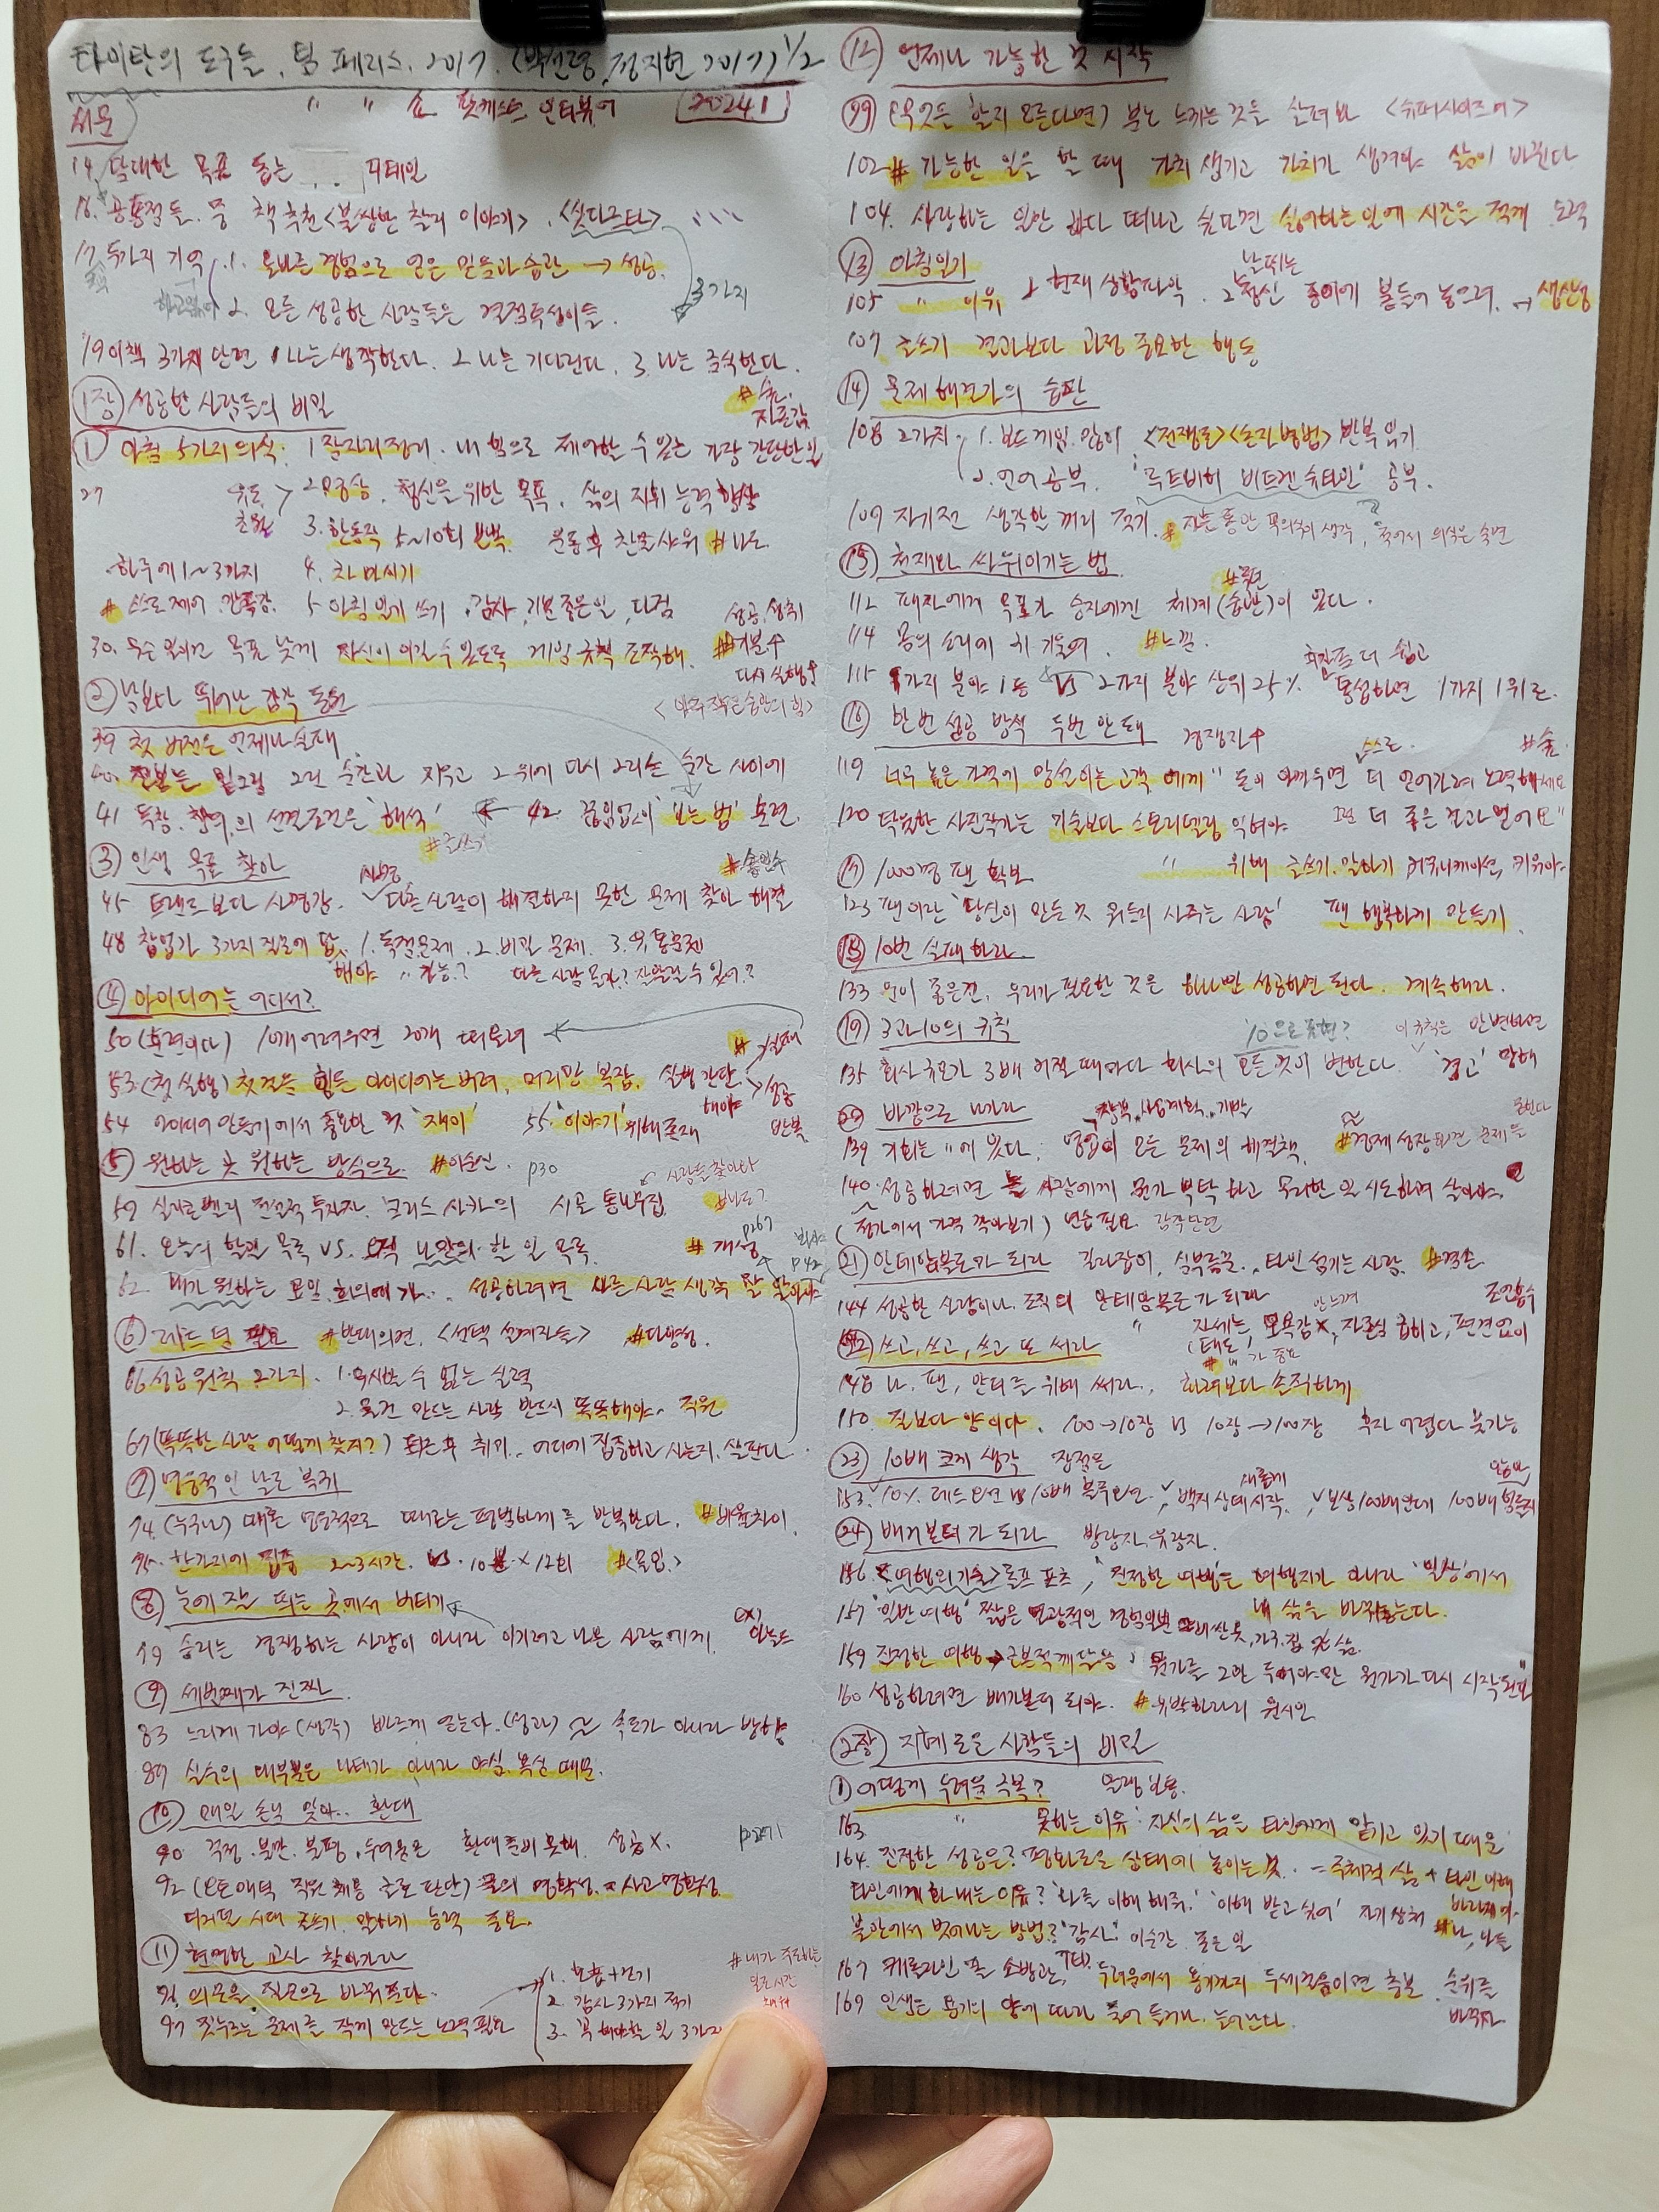 타이탄의 도구들, 팀 페리스, 2017. (박선령, 정지현 2017) 1/2
" " 쇼 팟캐스트 인터뷰어 20241
서문
14. 담대한 목표 돕는 디테일
16. 공통점들. 중 책 추천 <불쌍한 찰리 이야기>. <싯다르타>
17. 두가지 기억. 1. 올바른 경험으로 얻은 믿음과 습관 → 성공.
2. 모든 성공한 사람들은 결점투성이들. 3가지
19 이책 3가지 단련 1 나는 생각한다. 2 나는 기다린다. 3. 나는 금식한다.
1장 성공한 사람들의 비밀 #숨. 자존감.
① 아침 5가지 의식. 1 잠자리 정리. 내 힘으로 제어할 수 있는 가장 간단한 일
27 2 명상. 정신을 위한 목표. 삶의 지휘 능력 향상
3. 한동작 5~10회 반복. 운동 후 찬물샤워 #나도.
하루에 1~3가지 4. 차 마시기
# 스스로 제어 5. 아침 일기 쓰기. 감사, 기분 좋은 일, 다짐 성공, 성취
30. 무슨 일이건 목표 낮게 자신이 이길 수 있도록 게임 규칙 조작해. ##기분↑
다시 실행↑
② 남보다 뛰어난 감각 동원 <아주 작은 습관의 힘>
39 첫 버전은 언제나 실패
40. 진보는 밑그림 그린 순간과 지우고 그 위에 다시 그리는 순간 사이에
41 독창. 창의.의 선결조건은 '해석' ← 42 끊임없이 '보는 법' 훈련.
#글쓰기
③ 인생 목표 찾아
45 트렌드보다 사명감. 다른 사람이 해결하지 못한 문제 찾아 해결
48 창업가 3가지 질문에 답. 1. 독점문제. 2. 비밀 문제. 3. 유통문제
해야 " 가능? 다른 사람 모르? 잘 알릴 수 있어?
④ 아이디어는 어디서?
50 (훈련이다) 10개 어려우면 20개 떠올려
53. (첫 실행) 첫 걸음 힘든 아이디어는 버려, 머리만 복잡. 실행 간단. 해야 # 실패 > 성공 반복
54 아이디어 만들기에서 중요한 것 '재미' 55. '이야기' 위해 존재
⑤ 원하는 곳 원하는 방식으로. #이순신. p30
59 실리콘밸리 전설적 투자자. '크리스 사카'의 시골 통나무집 사람들 찾아와
61. 오늘의 할일 목록 VS. 오직 나만의 할 일 목록. # 개성 p267
62. 내가 원하는 모임, 회의에 가.. 성공하려면 다른 사람 생각 잘 알아야 p42
⑥ 레드 팀 필요 #반대의견. <선택 설계자들> #다양성.
66 성공원칙 2가지. 1. 무시받을 수 없는 실력
2. 물건 만드는 사람 반드시 똑똑해야. 직원
67 (똑똑한 사람 어떻게 찾지?) 퇴근후 취미.. 어디에 집중하고 사는지. 살핀다.
⑦ 영웅적인 날로 복귀
74. (누구나) 때론 영웅적으로 때로는 평범하게를 반복한다. #비율차이.
75. 한가지에 집중 2~3시간. VS. 10분 × 12회 #<몰입>
⑧ 눈에 잘 띄는 곳에서 버티기
79 승리는 경쟁하는 사람이 아니라 이기려고 나온 사람에게.
⑨ 세번째가 진짜.
83 느리게 가야 (생각) 빠르게 얻는다. (성과) 속도가 아니라 방향
89 실수의 대부분은 나태가 아니라 야심. 욕심 때문.
⑩ 매일 손님 맞아.. 환대
90 걱정. 불만. 불평. 두려움은 환대 준비 못해. 성공 X. p271
92 (오토매틱 직원 채용 글로 판단) 글의 명확성 = 사고 명확성.
디지털 시대 글쓰기. 말하기 능력 중요.
⑪ 현명한 교사 찾아가라
96. 의문을 질문으로 바꿔 푼다.
97 짓누르는 문제를 작게 만드는 노력 필요
1. 호흡+걷기
2. 감사 3가지 적기
3. 꼭 해야할 일 3가지
#내가 주도하는 일로 시간 채워
⑫ 언제나 가능한 것 시작
99 (무엇을 할지 모른다면) 분노 느끼는 것을 살펴봐 <슈퍼사이즈 미>
102 # 가능한 일을 할 때 가치 생기고 가치가 생겨야 삶이 바뀐다
104. 사랑하는 일만 하다 떠나고 싶으면 싫어하는 일에 시간을 적게 노력
⑬ 아침일기
105 " 이유 1. 현재 상황파악. 2. 날뛰는 정신 종이에 붙들어 놓으려. → 생산성
107 글쓰기 결과보다 과정 중요한 행동
⑭ 문제 해결가의 습관
108 2가지. 1. 보드게임 많이 <전쟁론> <손자병법> 반복 읽기
2. 언어 공부. '루트비히 비트겐슈타인' 공부.
109 자기전 생각할 꺼리 적기. # 자는 동안 무의식이 생각, 죽어서 의식은 숙면
⑮ 천재와 싸워 이기는 법
112 패자에게 목표가 승자에겐 체계(습관)이 있다. #루틴
114 몸의 소리에 귀 기울여. #느낌.
115 1가지 분야 1등 VS 2가지 분야 상위 25% 통섭하면 1가지 1위로. 더 쉽고
⑯ 한번 성공 방식 두번 안돼 경쟁자↑ #숨.
119 너무 높은 가격에 망설이는 고객에게 " 돈이 아까우면 더 얻어가려 노력하세요
120 탁월한 사진작가는 기술보다 스토리텔링 익혀야 그럼 더 좋은 결과 얻어요"
⑰ 1000명 팬 확보 " 위해 글쓰기. 말하기 커뮤니케이션 키워야.
123 팬이란 '당신이 만든 것 뭐든지 사주는 사람' 팬 행복하게 만들기.
⑱ 10번 실패하라.
133 운이 좋은건, 우리가 필요한 것은 하나만 성공하면 된다. 계속해라.
⑲ 3과 10의 규칙 10으로 표현? 이 규칙은 안 변하면
135 회사 규모가 3배 커질 때마다 회사의 모든 것이 변한다. '경고' 망해
⑳ 바깥으로 나가라
139 기회는 "에 있다: 영업이 모든 문제의 해결책. #경제 성장 되면 문제를 푼다
140. 성공하려면 늘 사람에게 뭔가 부탁하고 무리한 일 시도하며 살아야.
(정가에서 가격 깎아보기) 연습 필요 감각단련
㉑ 안테암불로가 되라 길라잡이, 심부름꾼.. 타인 섬기는 사람. #겸손
144 성공한 사람이나. 조직의 안테암불로가 되라
" 자세는, 모욕감 X, 자존심 굽히고, 편견없이 조언흡수
(태도)
㉒ 쓰고, 쓰고, 쓰고 또 써라
148 나, 팬, 안티를 위해 써라., 화려보다 솔직하게
150 질보다 양이다. 100→10장 VS 10장→100장 후자 어렵다 불가능
㉓ 10배 크게 생각 장점은
153. 10% 레드오션 VS 10배 블루오션. 백지상태 시작. 새롭게 보상 100배 인데 100배 힘든지
㉔ 배가본더가 되라 방랑자. 유랑자.
156. <여행의 기술> 롤프 포츠, '진정한 여행'은 여행지가 아니라 '일상'에서
157 '일반 여행' 짧은 열광적인 경험의 반 내 삶을 바꿔놓는다.
159 진정한 여행 → 근본적 깨달음. 뭔가를 그만 두어야만 뭔가가 다시 시작된다
160 성공하려면 배가본더 되야. #유발하라리 원시인
2장 지혜로운 사람들의 비밀
① 어떻게 두려움 극복? 알랭 보통.
163 " 못하는 이유: 자신의 삶을 타인에게 맡기고 있기 때문
164. 진정한 성공은? 평화로운 상태에 놓이는 것. = 주체적 삶 + 타인 이해
타인에게 화내는 이유? '나를 이해 해줘.' '이해 받고 싶어' 자기 상처
불안에서 벗어나는 방법? "감사". 이순간 좋은 일
167 캐롤라인 폴 소방관, 두려움에서 용기까지 두세걸음이면 충분 순위를 바꾸자
169 인생은 용기의 양에 따라 줄어 들거나. 늘어난다.